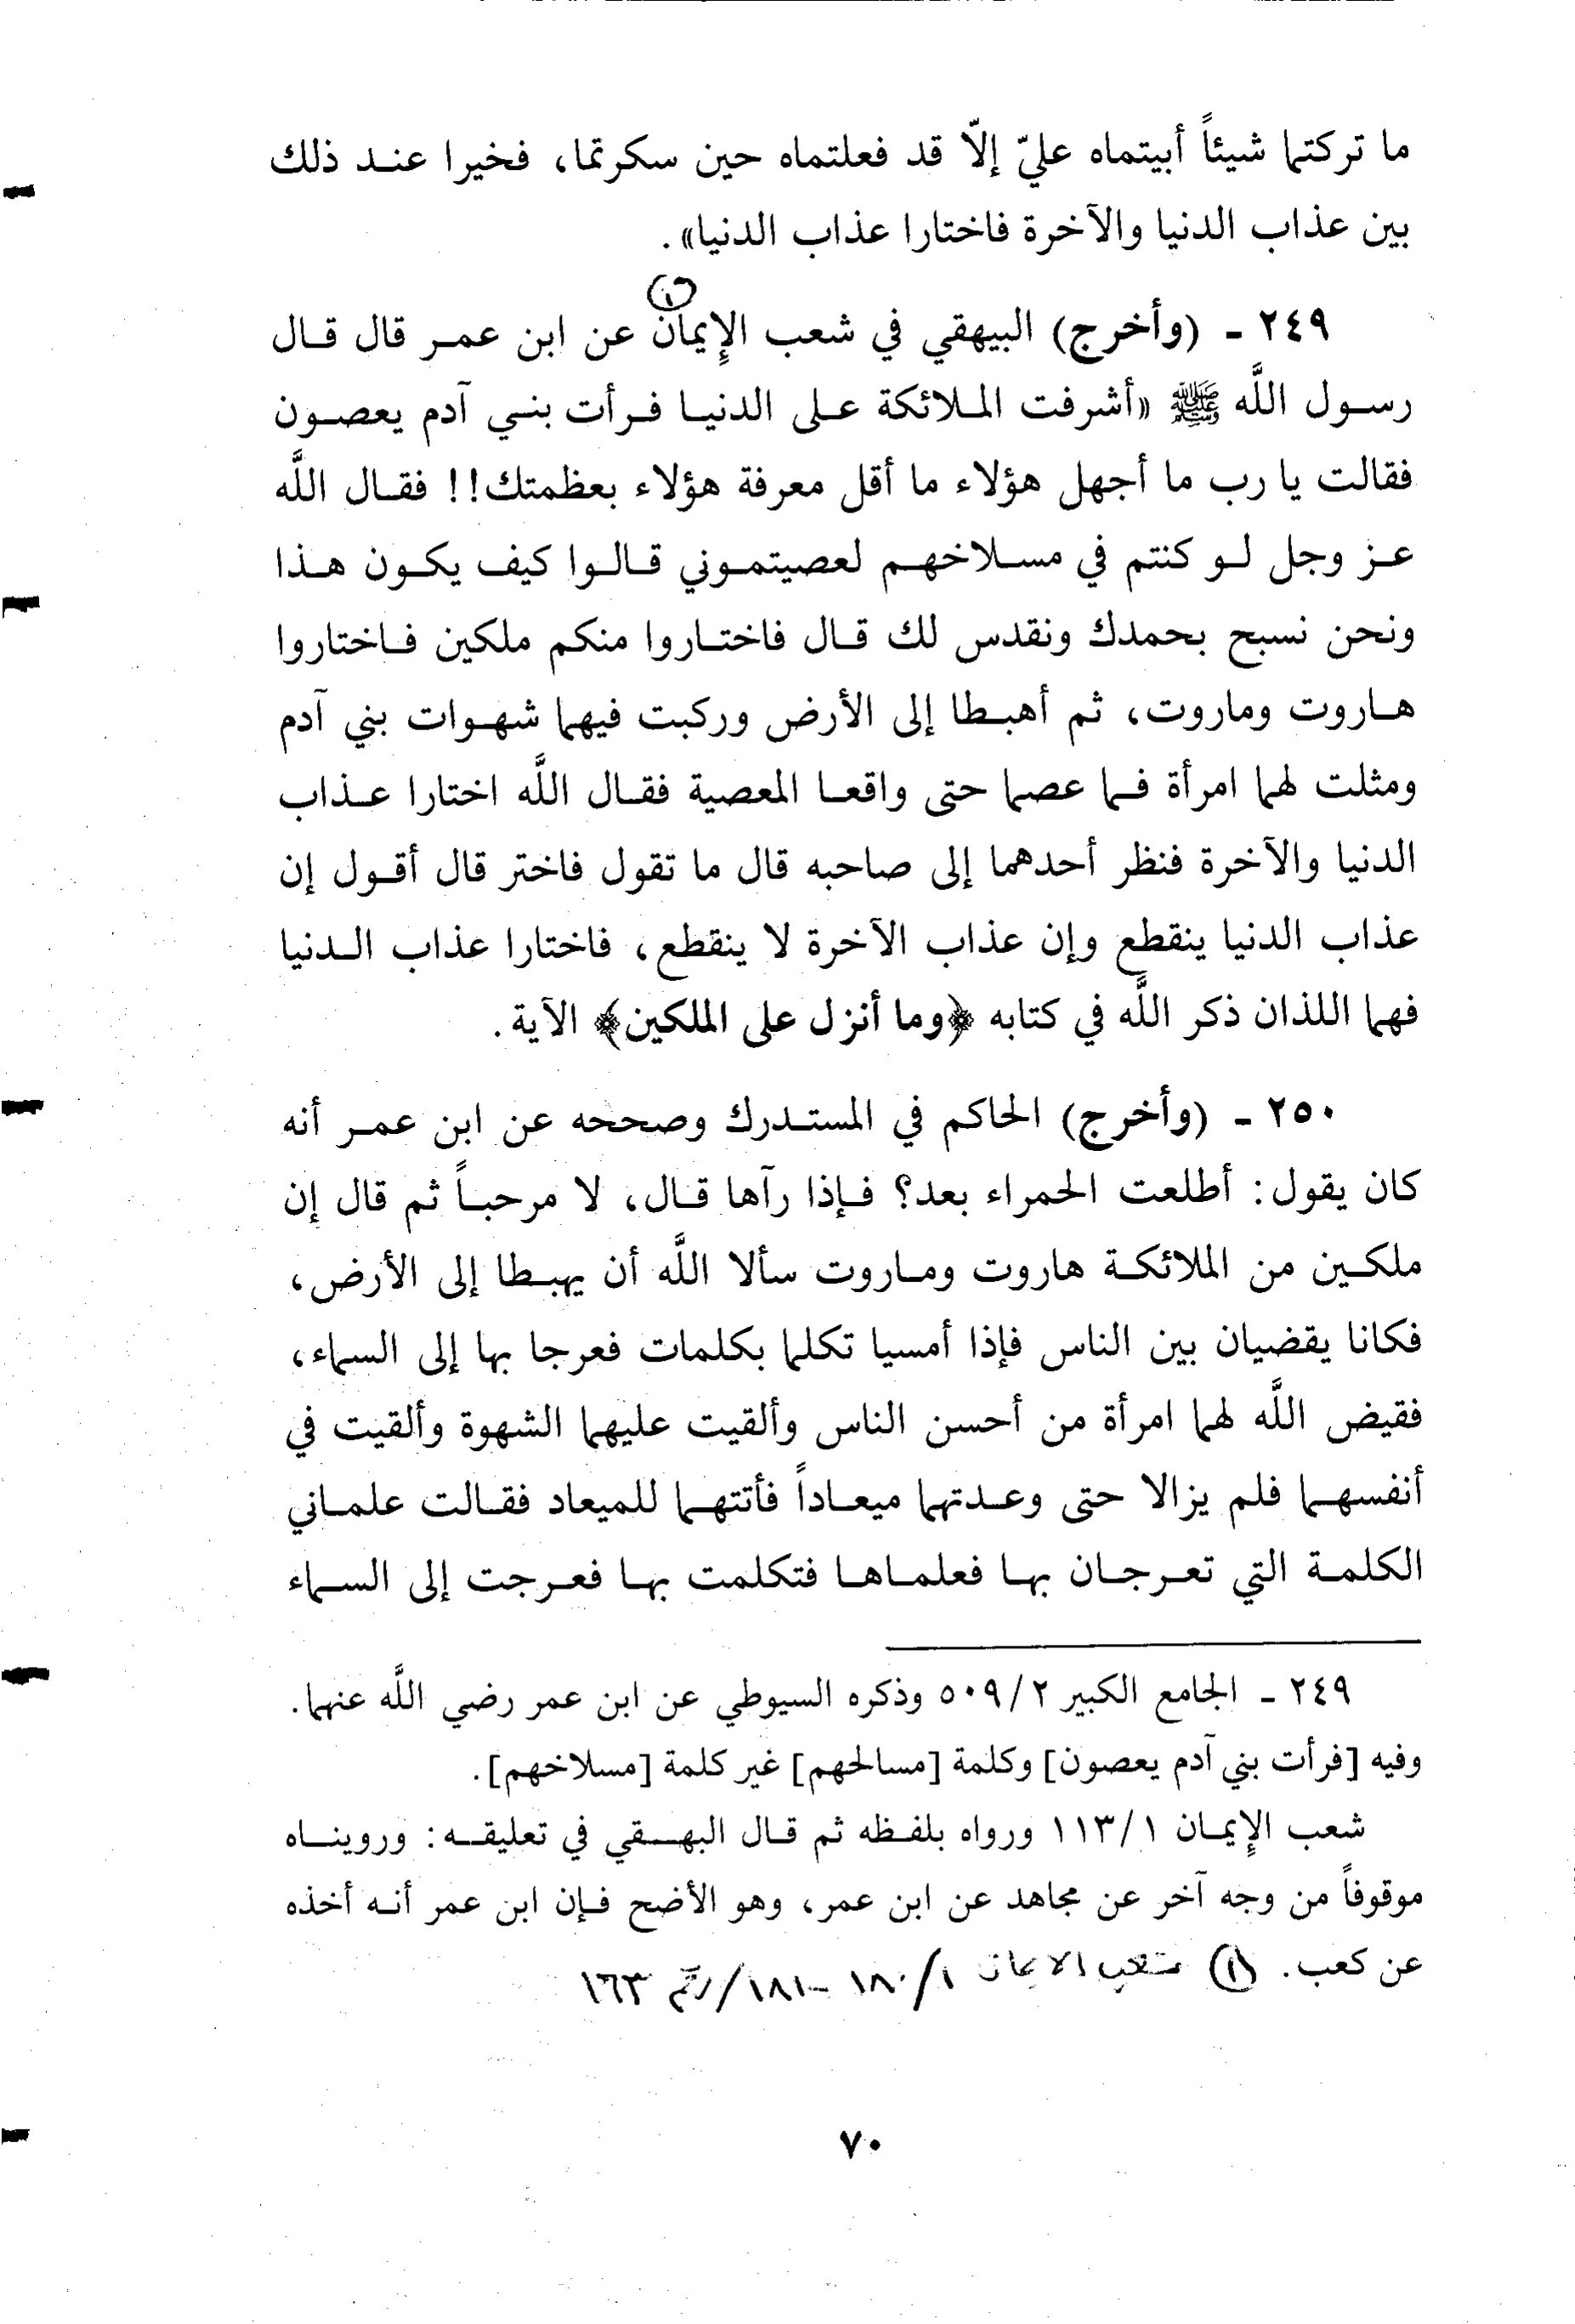 ما تركتما شيئاً أبيتماه عليّ إلاّ قد فعلتماه حين سكرتما، فخيرا عند ذلك
بين عذاب الدنيا والآخرة فاختارا عذاب الدنيا».
(١)
٢٤٩ - (وأخرج) البيهقي في شعب الإيمان عن ابن عمر قال قال
رسول اللَّه ﷺ «أشرفت الملائكة على الدنيا فرأت بني آدم يعصون
فقالت يا رب ما أجهل هؤلاء ما أقل معرفة هؤلاء بعظمتك!! فقال اللَّه
عز وجل لو كنتم في مسلاخهم لعصيتموني قالوا كيف يكون هذا
ونحن نسبح بحمدك ونقدس لك قال فاختاروا منكم ملكين فاختاروا
هاروت وماروت، ثم أهبطا إلى الأرض وركبت فيهما شهوات بني آدم
ومثلت لهما امرأة فما عصما حتى واقعا المعصية فقال اللَّه اختارا عذاب
الدنيا والآخرة فنظر أحدهما إلى صاحبه قال ما تقول فاختر قال أقول إن
عذاب الدنيا ينقطع وإن عذاب الآخرة لا ينقطع، فاختارا عذاب الدنيا
فهما اللذان ذكر اللَّه في كتابه ﴿وما أنزل على الملكين﴾ الآية.
٢٥٠ - (وأخرج) الحاكم في المستدرك وصححه عن ابن عمر أنه
كان يقول: أطلعت الحمراء بعد؟ فإذا رآها قال، لا مرحباً ثم قال إن
ملكين من الملائكة هاروت وماروت سألا اللَّه أن يهبطا إلى الأرض،
فكانا يقضيان بين الناس فإذا أمسيا تكلما بكلمات فعرجا بها إلى السماء،
فقيض اللَّه لهما امرأة من أحسن الناس وألقيت عليهما الشهوة وألقيت في
أنفسهما فلم يزالا حتى وعدتهما ميعاداً فأتتهما للميعاد فقالت علماني
الكلمة التي تعرجان بها فعلماها فتكلمت بها فعرجت إلى السماء
٢٤٩ - الجامع الكبير ٥٠٩/٢ وذكره السيوطي عن ابن عمر رضي اللَّه عنهما.
وفيه [فرأت بني آدم يعصون] وكلمة [مسالحهم] غير كلمة [مسلاخهم].
شعب الإيمان ١١٣/١ ورواه بلفظه ثم قال البهقي في تعليقه: ورويناه
موقوفاً من وجه آخر عن مجاهد عن ابن عمر، وهو الأضح فإن ابن عمر أنه أخذه
عن كعب. (١) شعب الايمان ١/ ١٨٠ - ١٨١/ رقم ١٦٣
٧٠